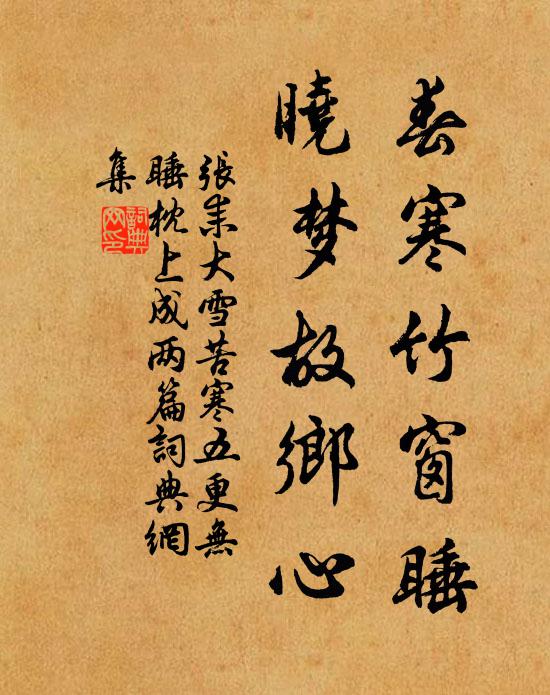 春寒竹窗睡
曉梦故鄉心
張耒大雪苦寒五更無
睡枕上成两篇詞典網
集
詞典网印